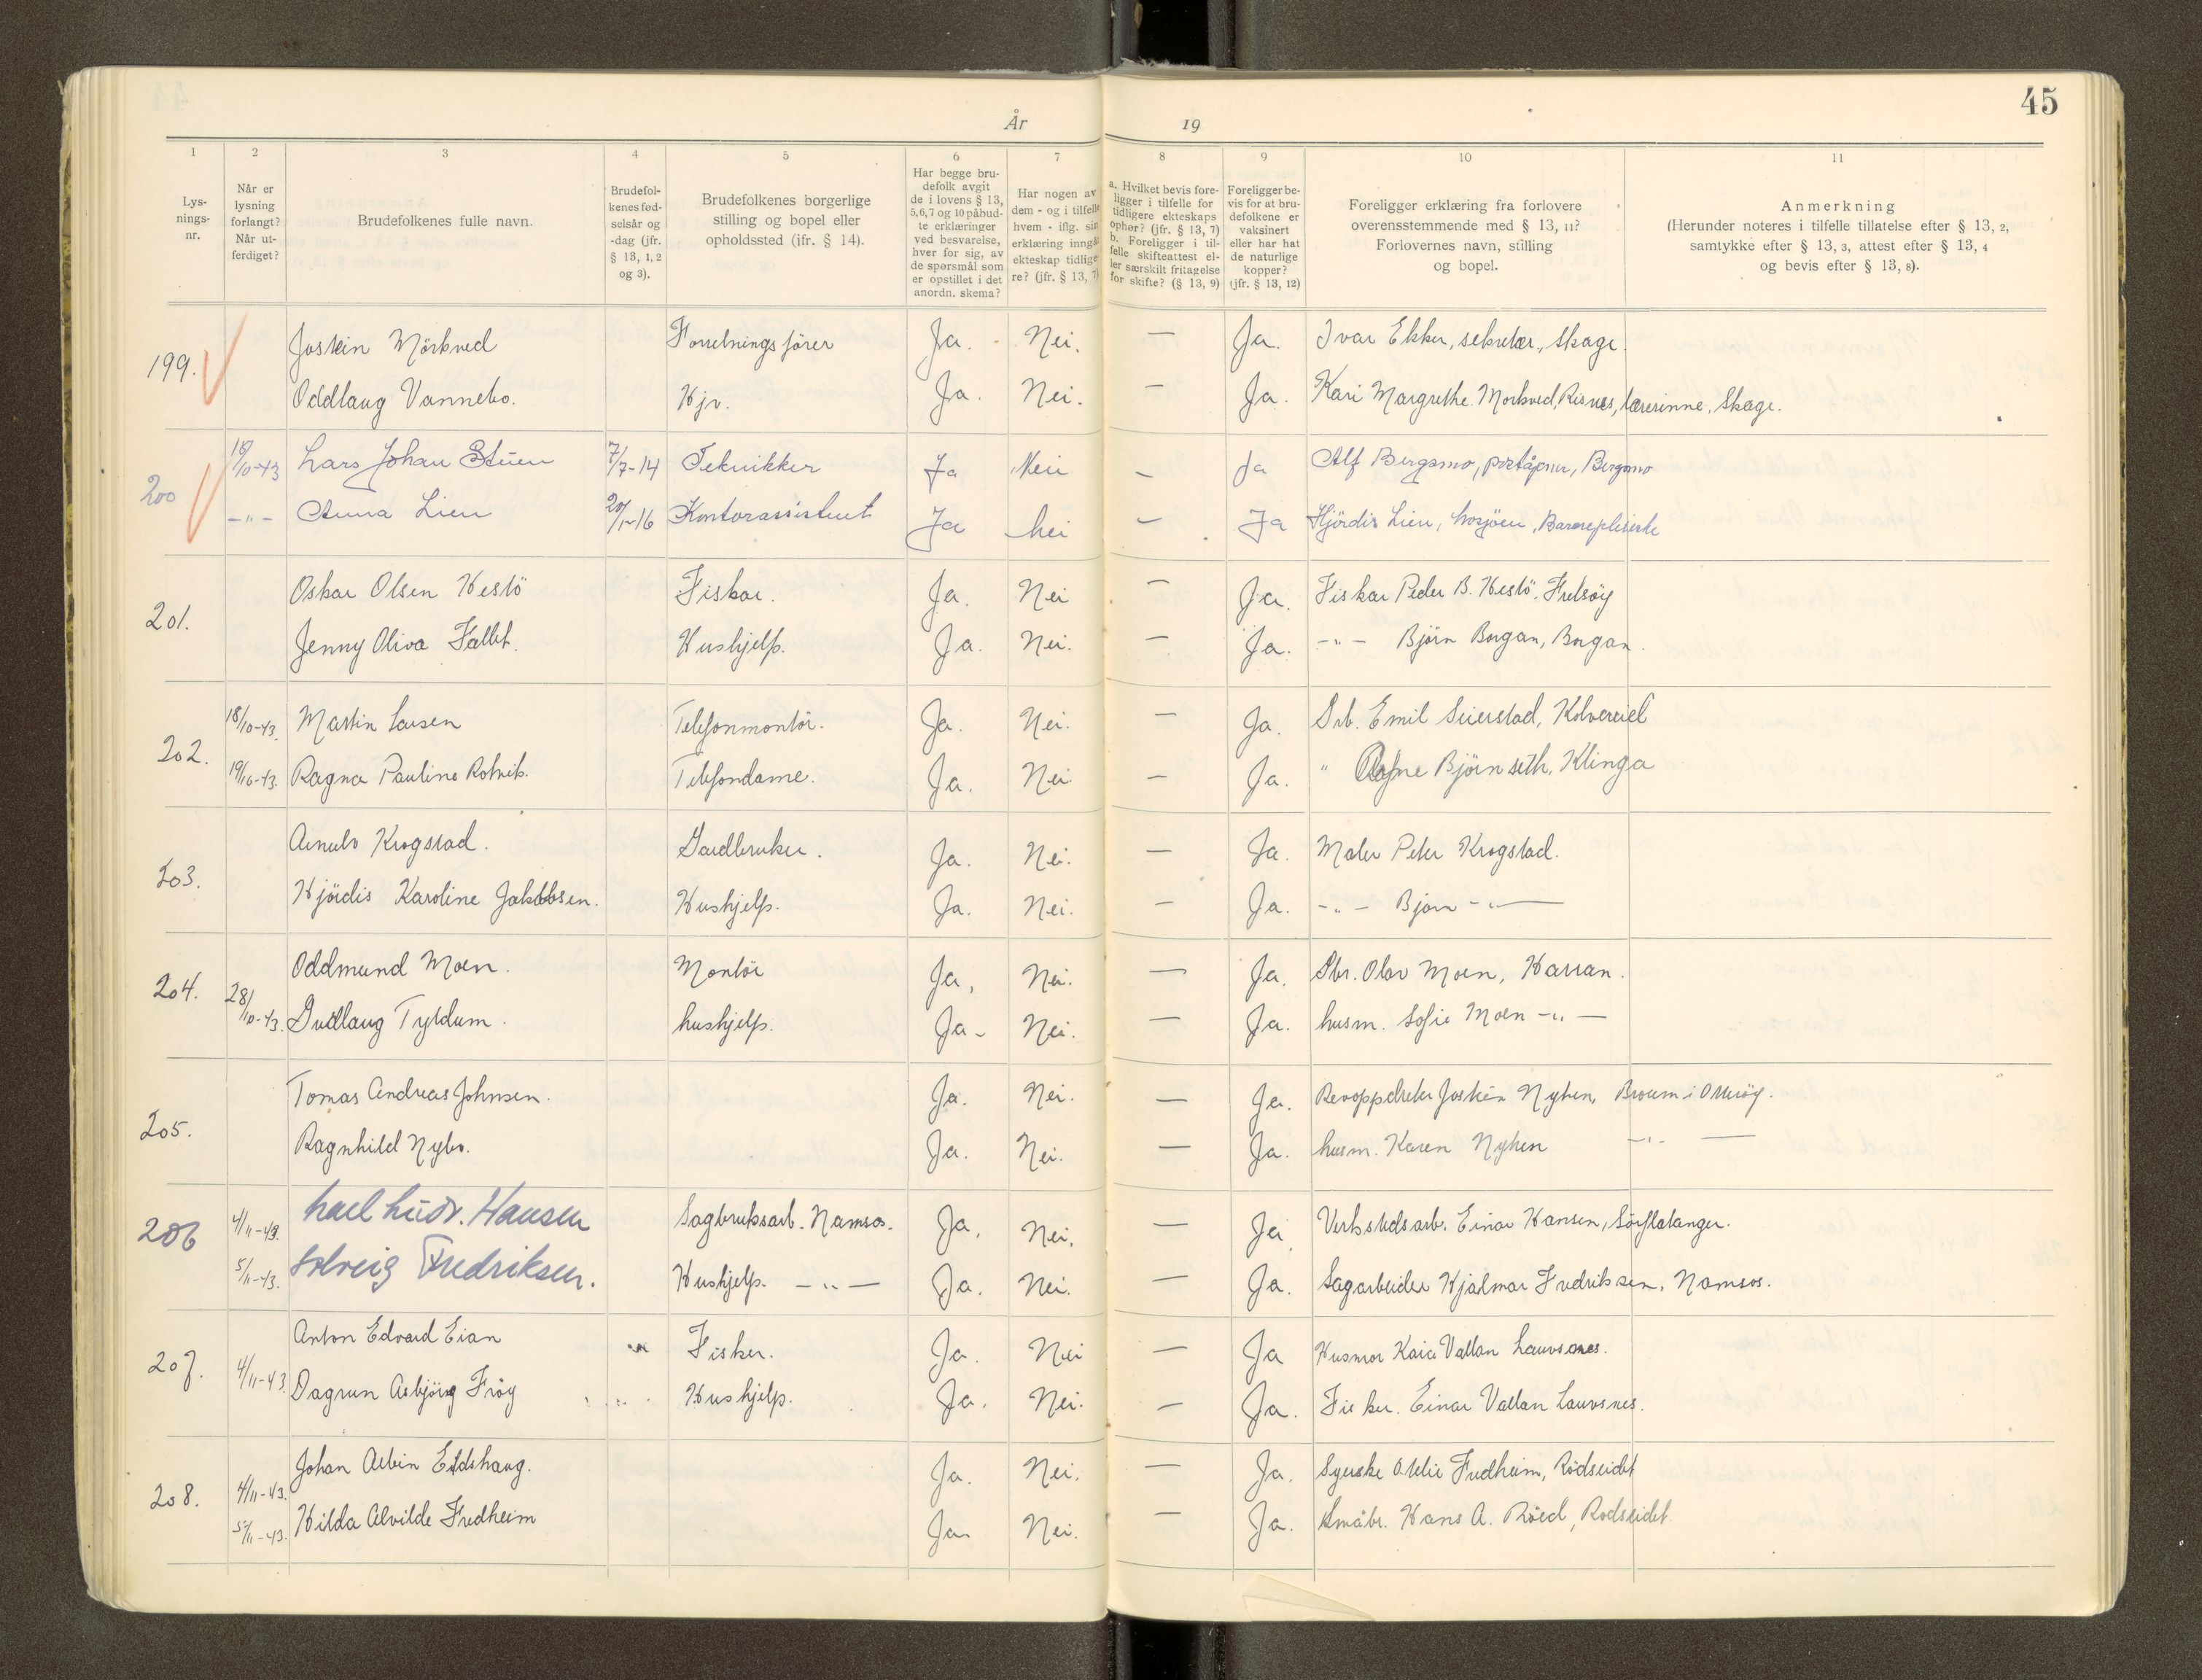 45
År 19
1 2 3 4 5 6 7 8 9 10 11
Lys-
nings-
nr.
Når er
lysning
forlangt?
Når ut-
ferdiget?
Brudefolkenes fulle navn.
Brudefol-
kenes fød-
selsår og
-dag (jfr.
§ 13, 1, 2
og 3).
Brudefolkenes borgerlige
stilling og bopel eller
opholdssted (jfr. § 14).
Har begge bru-
defolk avgit
de i lovens § 13,
5,6,7 og 10 påbud-
te erklæringer
ved besvarelse,
hver for sig, av
de spørsmål som
er opstillet i det
anordn. skema?
Har nogen av
dem - og i tilfelle
hvem - iflg. sin
erklæring inngått
ekteskap tidlige-
re? (jfr. § 13, 7)
a. Hvilket bevis fore-
ligger i tilfelle for
tidligere ekteskaps
ophør? (jfr. § 13, 7)
b. Foreligger i til-
felle skifteattest el-
ler særskilt fritagelse
for skifte? (§ 13, 9)
Foreligger be-
vis for at bru-
defolkene er
vaksinert
eller har hat
de naturlige
kopper?
(jfr. § 13, 12)
Foreligger erklæring fra forlovere
overensstemmende med § 13, 11?
Forlovernes navn, stilling
og bopel.
Anmerkning
(Herunder noteres i tilfelle tillatelse efter § 13, 2,
samtykke efter § 13, 3, attest efter § 13, 4
og bevis efter § 13, 8).
199.
Jostein Mörkved Forretningsförer Ja. Nei. — Ja. Ivar Ekker, sekretær, Skage.
Oddlaug Vannebo. Hjv. Ja. Nei. — Ja. Kari Margrethe Morkved, Risnes, lærerinne, Skage.
200
18/10-43 Lars Johan Stuen 7/7-14 Tekniker Ja Nei — Ja Alf Bergsmo, poståpner, Bergsmo
-"- Anna Lien 20/1-16 Kontorassistent Ja Nei — Ja Hjördis Lien, Barnepleierske
201.
Oskar Olsen Hestö Fiskar. Ja. Nei — Ja. Fiskar Peder B. Hestö,
Jenny Oliva Fallet. Hushjelp. Ja. Nei. — Ja. -"- Björn Borgan, Borgan.
202.
18/10-43. Martin Larsen Telefonmontör. Ja. Nei. — Ja. Emil Seierstad, Kolvereid
19/10-43. Ragna Pauline Rotvik. Telefondame. Ja. Nei — Ja. " Björnseth, Klinga
203.
Arnulv Krogstad. Gardbruker. Ja. Nei. — Ja. Maler Peter Krogstad.
Hjördis Karoline Jakobsen. Hushjelp. Ja. Nei. — Ja. -"- Bjarn -"-
204.
28/10-43.
Oddmund Moen. Montör Ja, Nei. — Ja. Gbr. Olav Moen, Harran.
Gudlaug Tyldum. hushjelp. Ja- Nei. — Ja. husm. Sofie Moen -"-
205.
Tomas Andreas Johnsen. Ja. Nei. — Ja. Revoppdretter Jostein Nyhen, Otteröy.
Ragnhild Nybo. Ja. Nei. — Ja. husm. Karen Nyhen -"-
206
4/11-43. Karl Ludv. Hansen Sagbruksarb. Namsos. Ja. Nei. — Ja. Verkstedsarb. Einar Hansen, Sörflatanger.
5/11-43. Solveig Fredriksen. Hushjelp. -"- Ja. Nei. — Ja. Sagarbeider Hjalmar Fredriksen, Namsos.
207.
4/11-43.
Anton Edvard Eian Fisker. Ja. Nei — Ja Husmor Kaia Vallan Lauvsnes.
Dagrun Asbjörg Fröy Hushjelp. Ja. Nei. — Ja. Fisker. Einar Vallan Lauvsnes.
208.
4/11-43. Johan Albin Eidshaug. Ja. Nei. — Ja. Syerske Otelie Fredheim, Rödseidet
5/11-43. Hilda Alvilde Fredheim Ja. Nei. — Ja. Småbr. Hans A. Röed, Rodseidet